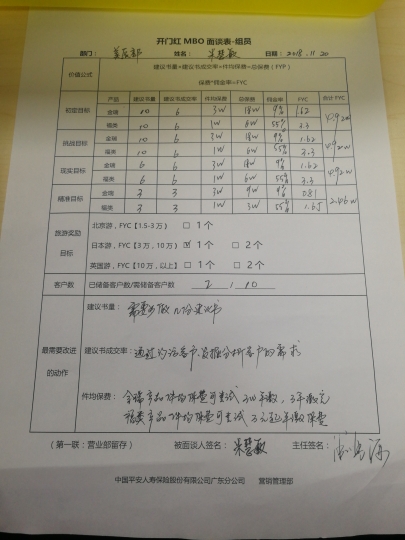 开门红 MBO 面谈表-组员
部门： 姓名： 朱慧敏 日期：2018.11.20
价值公式
建议书量×建议书成交率=件均保费=总保费（FYP）
保费*佣金率=FYC
产品 建议书量 建议书成交率 件均保费 总保费 佣金率 FYC 合计 FYC
初定目标
金瑞 10 6 3W 18W 9% 1.62
福类 10 6 1W 6W 55% 3.3
4.92W
挑战目标
金瑞 10 6 3W 18W 9% 1.62
福类 10 6 1W 6W 55% 3.3
4.92W
现实目标
金瑞 6 6 3W 18W 9% 1.62
福类 6 6 1W 6W 55% 3.3
4.92W
精准目标
金瑞 3 3 3W 9W 9% 0.81
福类 3 3 1W 3W 55% 1.65
2.46W
旅游奖励
目标
北京游，FYC【1.5-3 万） □ 1 个
日本游，FYC【3 万，10 万） ☑ 1 个 □ 2 个
英国游，FYC【10 万，以上】 □ 1 个 □ 2 个
客户数 已储备客户数/需储备客户数 2 / 10
最需要改进
的动作
建议书量：
需要多做几份建议书
建议书成交率：通过约访客户，发掘分析客户的需求
件均保费：金瑞产品件均保费可尝试3W年缴，3年缴完
福类产品件均保费可尝试1万元起年缴保费
（第一联：营业部留存） 被面谈人签名：朱慧敏 主任签名：
中国平安人寿保险股份有限公司广东分公司 营销管理部